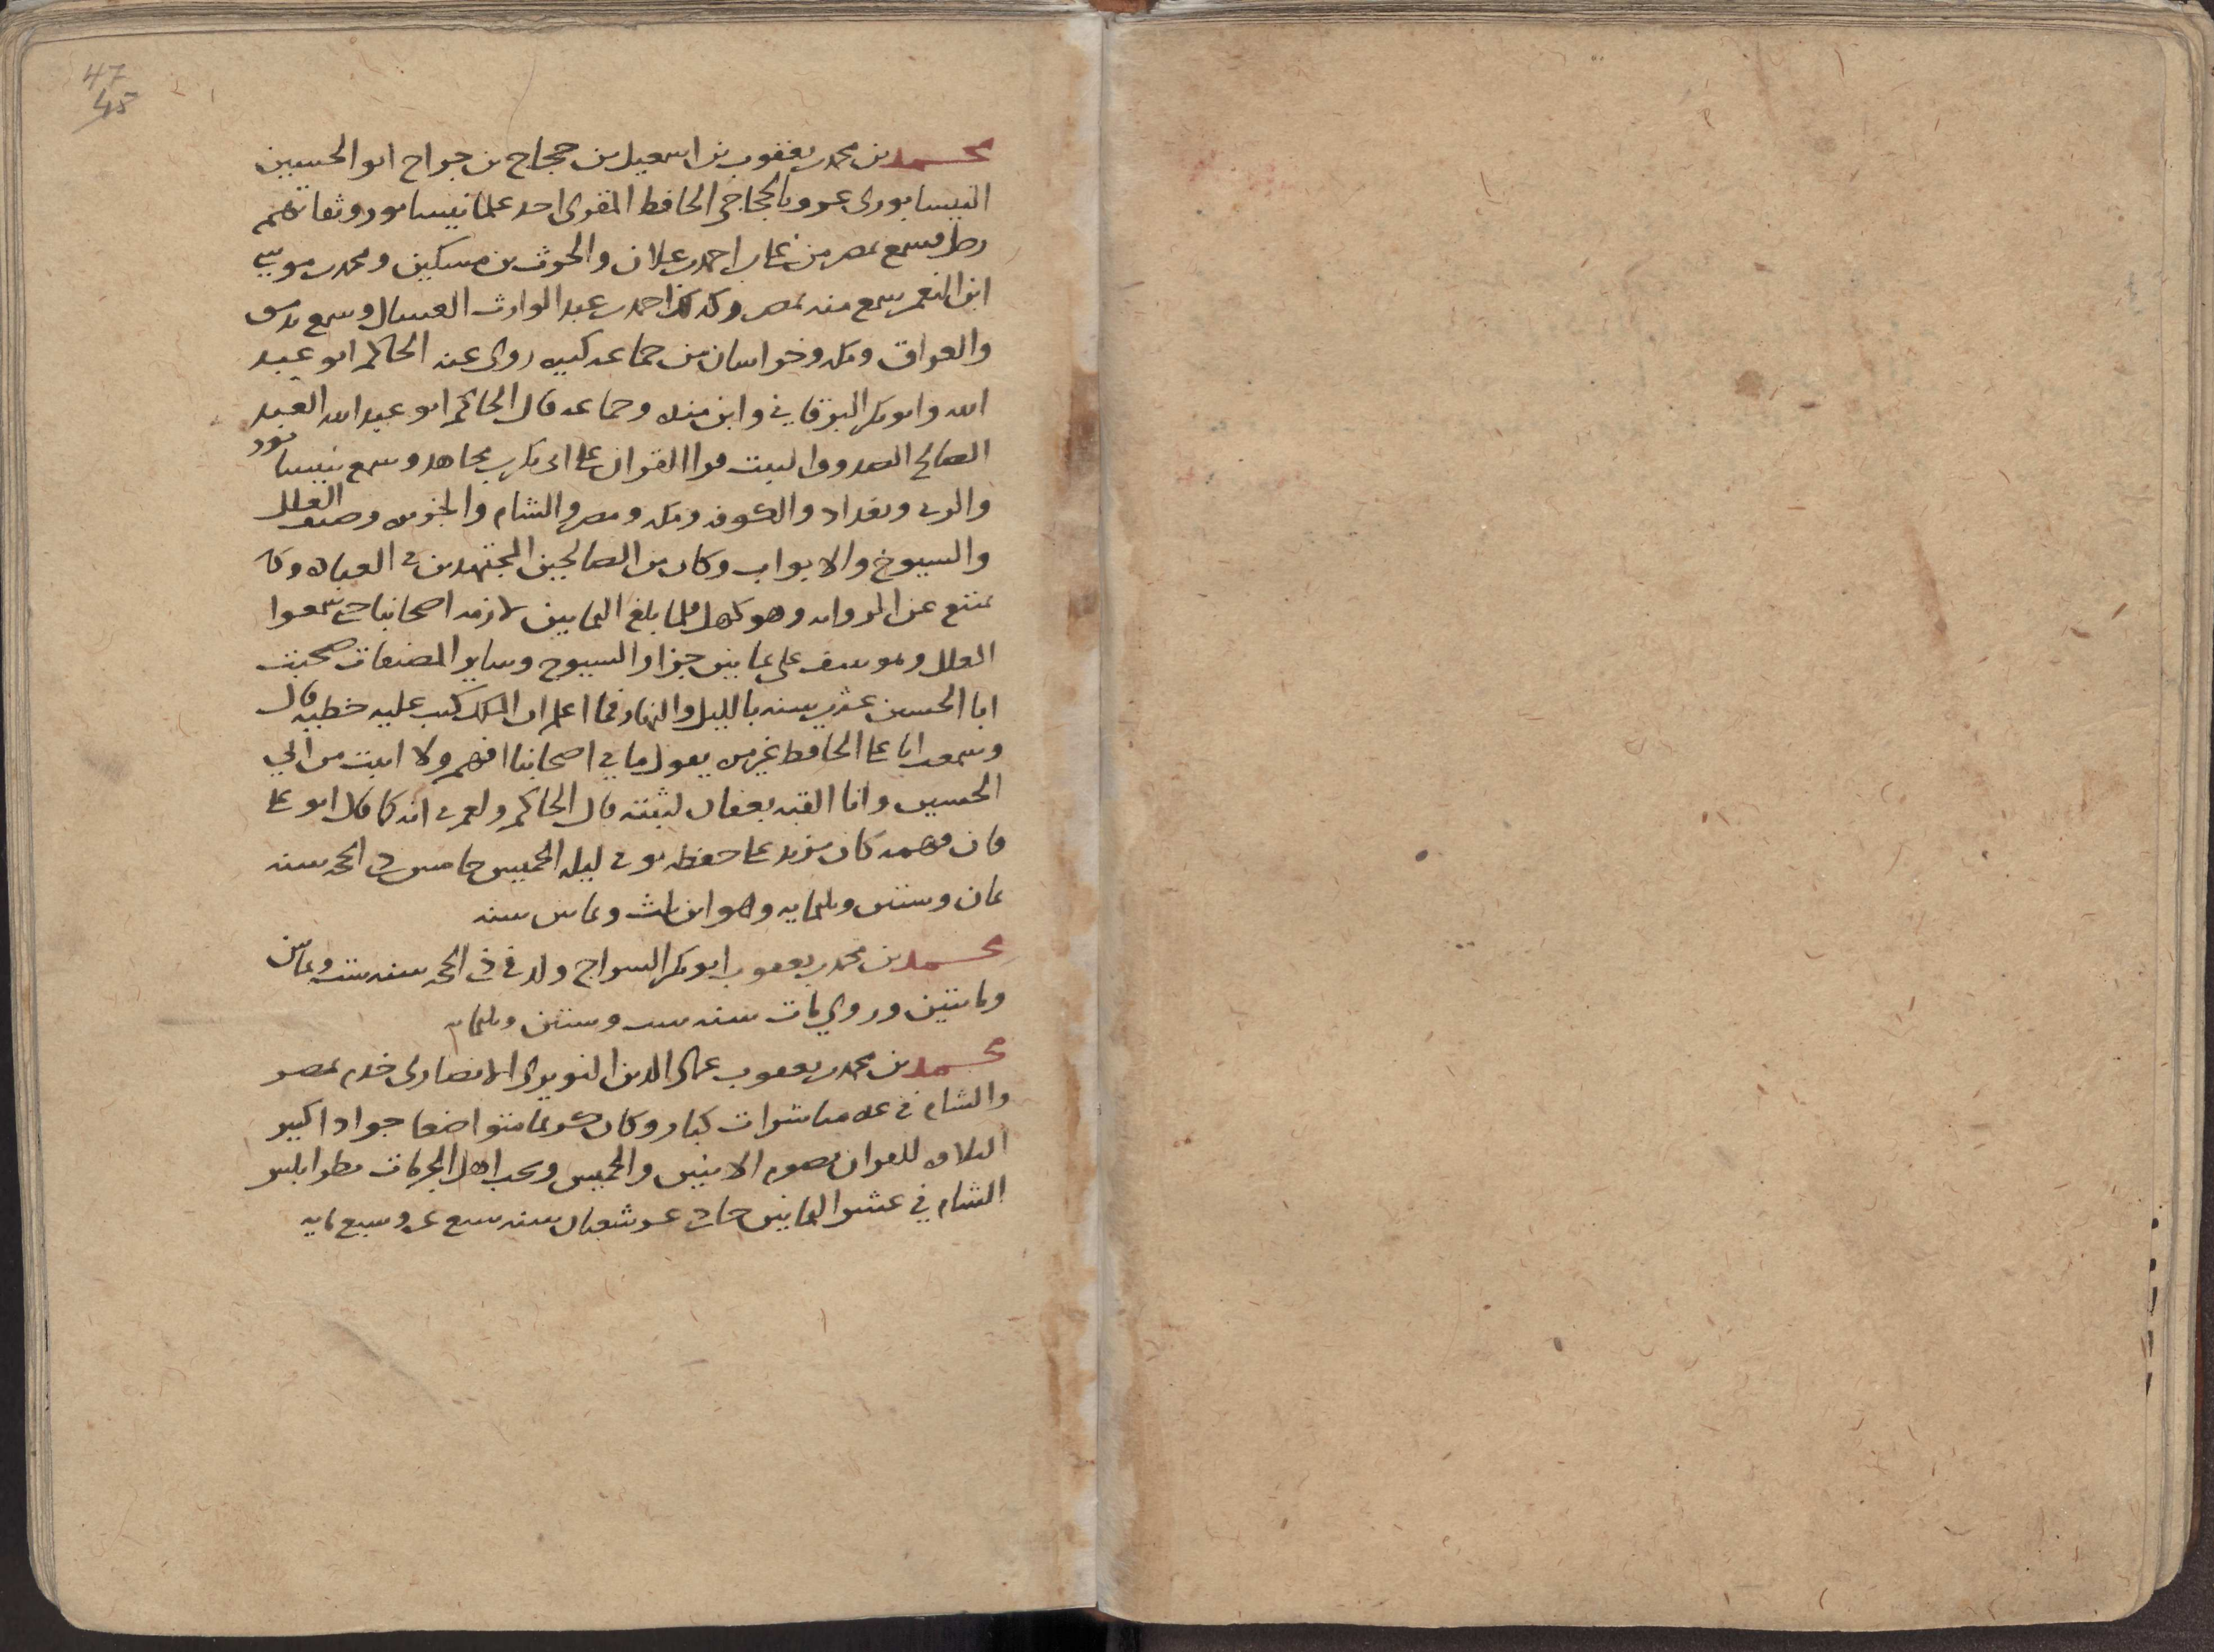 47
45
محمد بن محمد بن يعقوب بن اسمعيل بن حجاج بن جراح ابو الحسين
النيسابورى عرف بالحجاجي الحافظ المقرى احد علما نيسابور وثقاتهم
رحل فسمع بمصر من على بن احمد بن علان والحرث بن مسكين ومحمد بن موسى
ابن النعمر سمع منه بمصر وكذلك احمد بن عبد الوارث العسال وسمع بدمشق
والعراق ومكه وخراسان من جماعه كبيره روى عنه الحاكم ابو عبد
الله وابو بكر البرقاني وابن منده وجماعه قال الحاكم ابو عبد الله العبد
الصالح الصدوق الثبت قرا القران على ابى بكر بن مجاهد وسمع بنيسابور
والرى وبغداد والكوفه ومكه ومصر والشام والجزيره وصنف العلل
والشيوخ والابواب وكان من الصالحين المجتهدين فى العباده وكان
يمتنع عن الروايه وهو كهل فلما بلغ الثمانين لازمه اصحابنا حتى سمعوا
العلل وهو نيف على ثمانين جزا والشيوخ وساير المصنفات صحبت
ابا الحسين عشرين سنه بالليل والنهار فما اعلم ان الملك كتب عليه خطيه قال
وسمعت ابا على الحافظ غير مره يقول ما في اصحابنا افهم ولا اثبت من ابي
الحسين وانا القبه بعفان لثبته قال الحاكم ولعمرى انه كما قال ابو على
فان فهمه كان يزيد على حفظه توفى ليله الخميس خامس ذى الحجه سنه
ثمان وستين وثلثمايه وهو ابن ثلث وثمانين سنه
محمد بن محمد بن يعقوب ابو بكر السراج ولد فى ذى الحجه سنه ست وثمانين
ومايتين وروى مات سنه ست وستين وثلثمايه
محمد بن محمد بن يعقوب عماد الدين النويرى الانصارى خدم بمصر
والشام في عده مباشرات كبار وكان كريما متواضعا جوادا كثير
التلاوه للقران يصوم الاثنين والخميس ويحب اهل الخير مات بطرابلس
الشام في عشر الثمانين حادى عشر شعبان سنه سبع عشره وسبع مايه